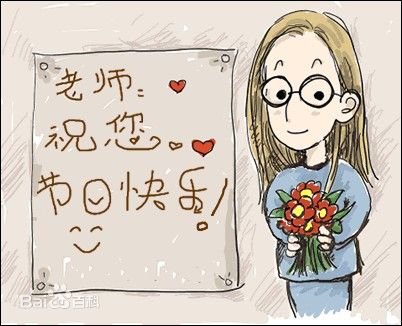 老师：
祝您
节日快乐！
Bai百科